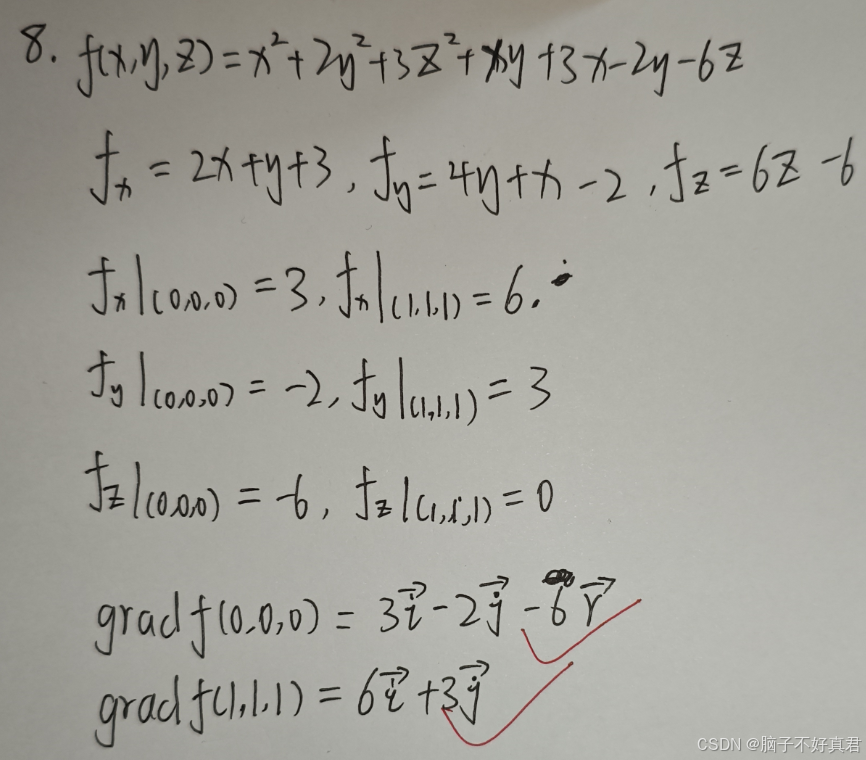 8. f(x,y,z)=x²+2y²+3z²+xy+3x-2y-6z
fx = 2x+y+3, fy=4y+x-2, fz=6z-6
fx|(0,0,0) = 3, fx|(1,1,1) = 6.
fy|(0,0,0) = -2, fy|(1,1,1) = 3
fz|(0,0,0) = -6, fz|(1,1,1) = 0
grad f(0,0,0) = 3i⃗ - 2j⃗ - 6r⃗
grad f(1,1,1) = 6i⃗ + 3j⃗
CSDN @脑子不好真君